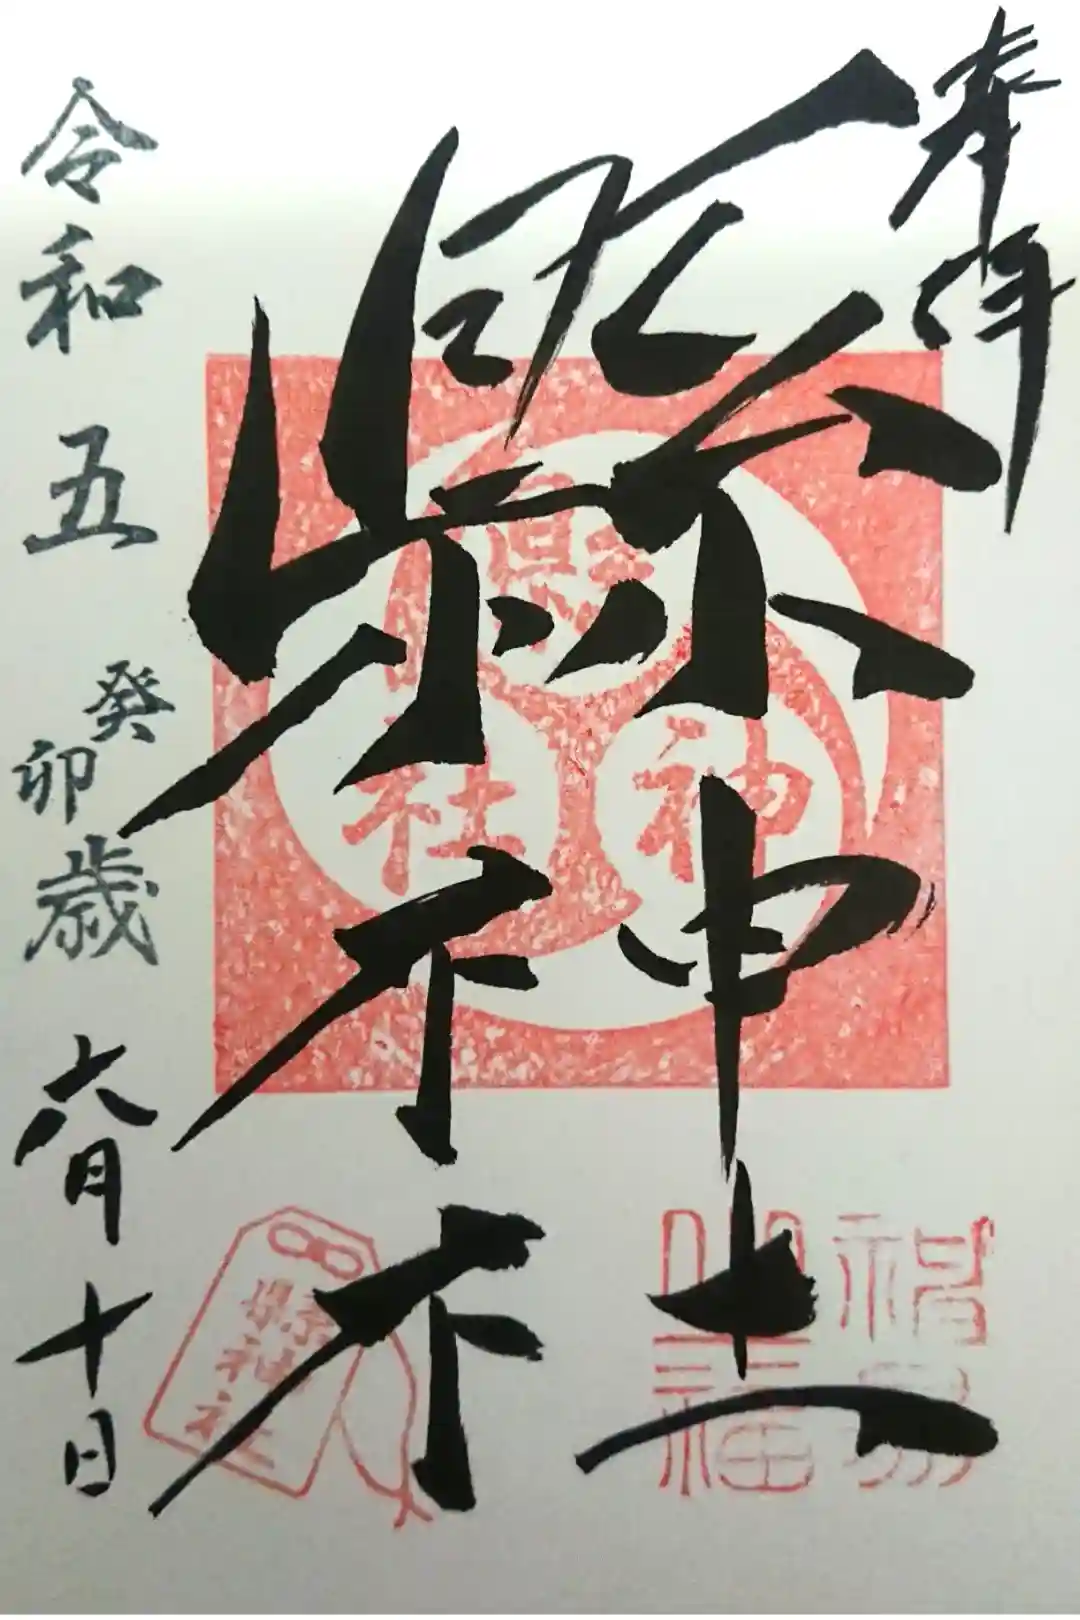 奉拝
縣神社
令和五癸卯歳六月十日
縣
神
社
縣神社